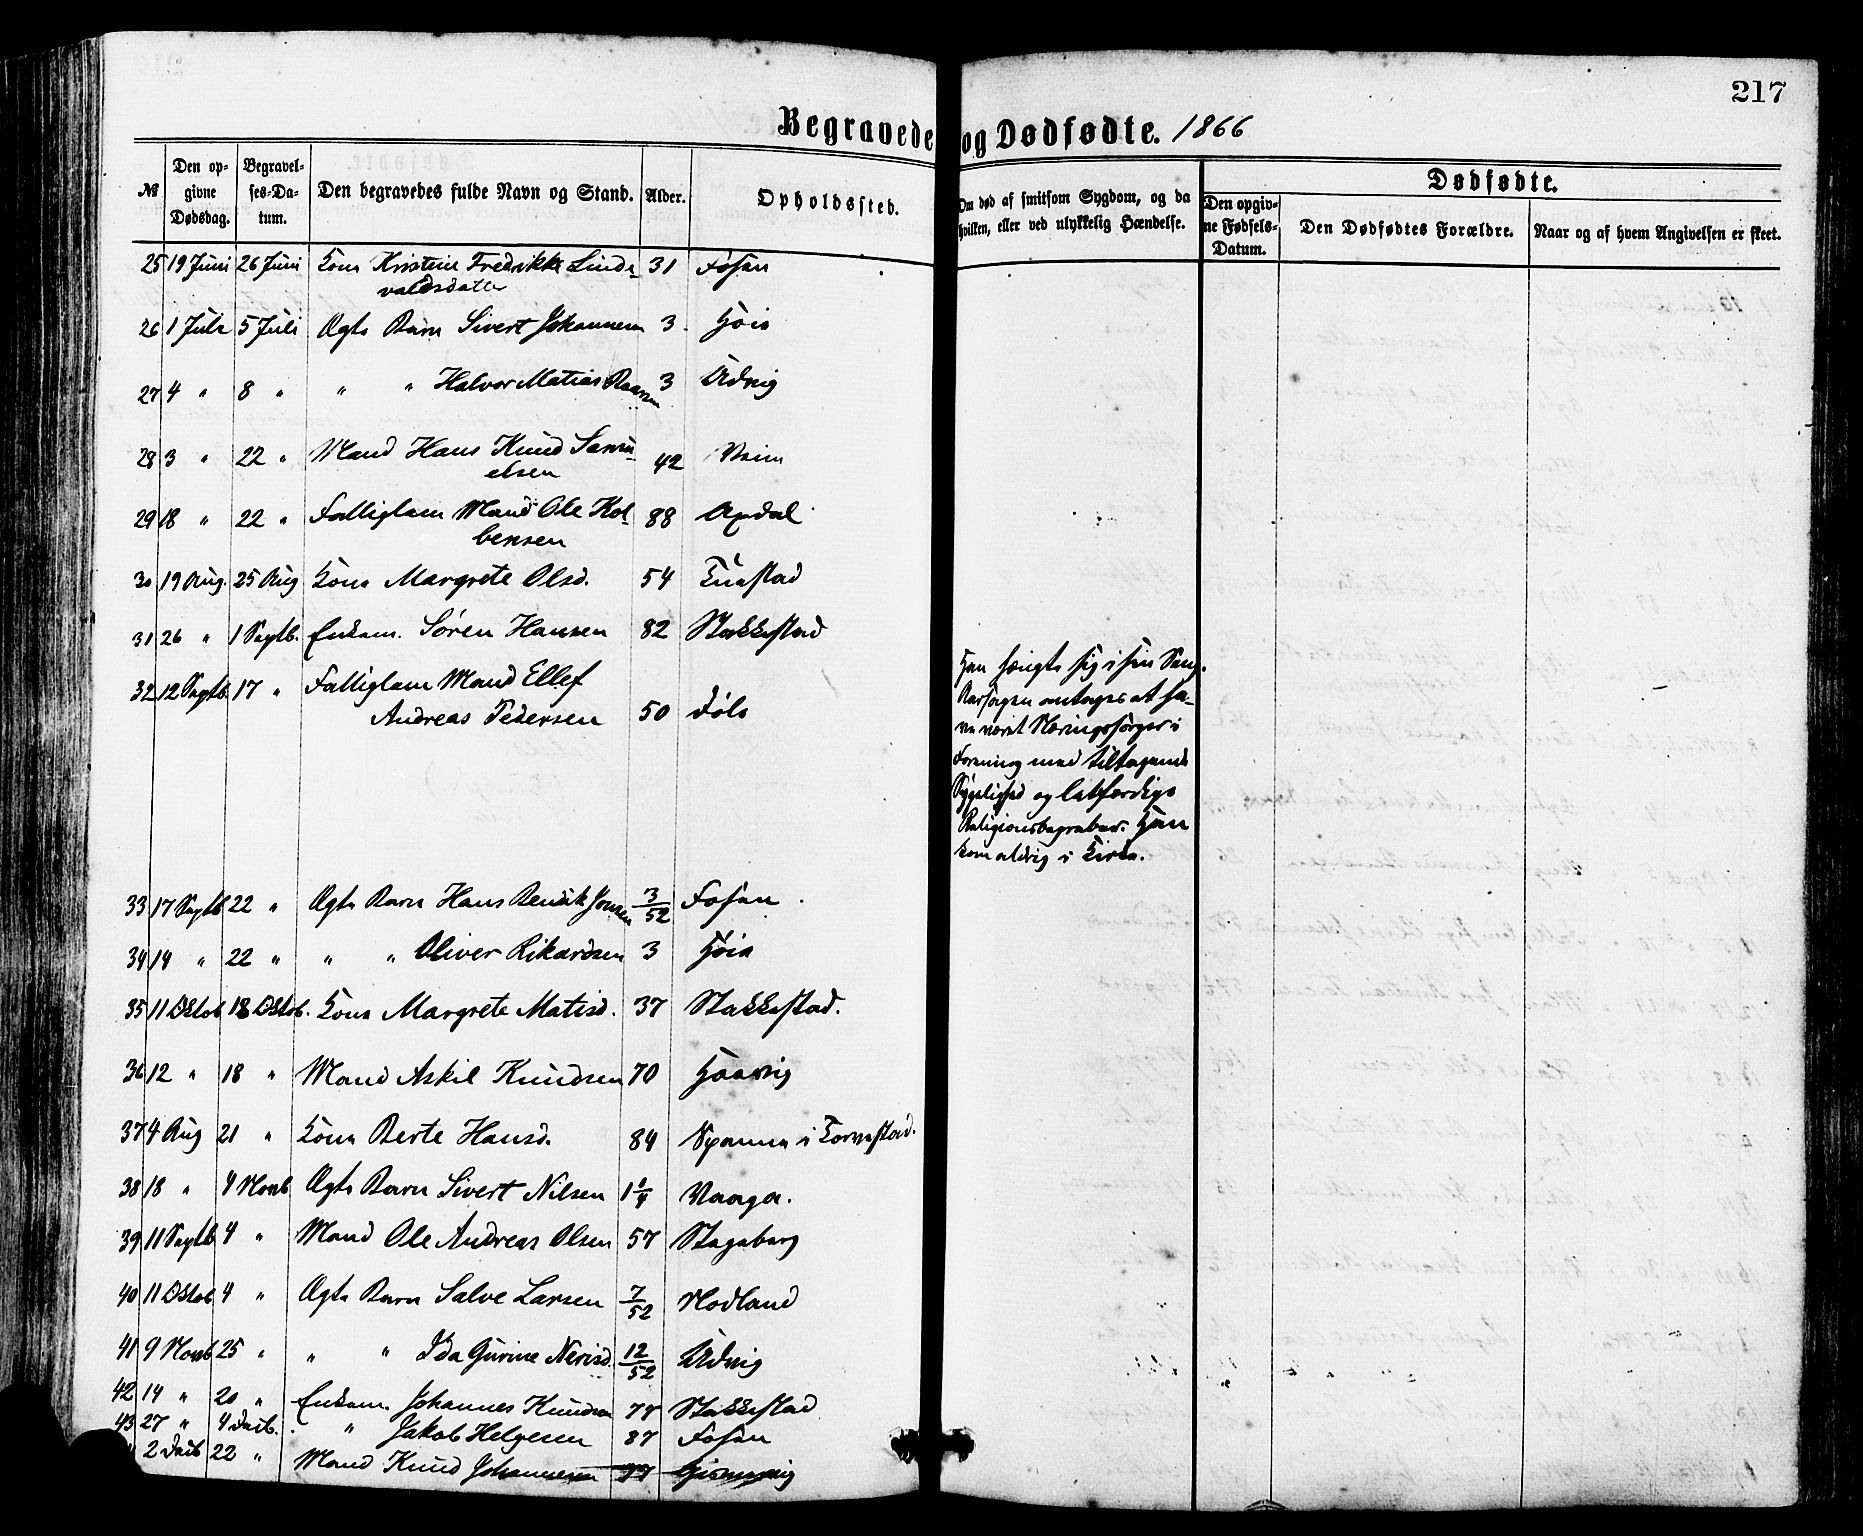 217
Begravede og Dødfødte. 1866
№ Den opgivne Dødsdag. Begravelses-Datum. Den begravedes fulde Navn og Stand. Alder. Opholdssted. Om død af smitsom Sygdom, og da hvilken, eller ved ulykkelig Hændelse. Dødfødte.
Den opgivne Fødsels-Datum. Den Dødfødtes Forældre. Naar og af hvem Angivelsen er skeet.
25 19 Juni 26 Juni Kone Kristine Fredrikke Lind-
valdsdatter 31 Fosen
26 1 Juli 5 Juli Ægte Barn Sivert Johannesen 3 Høie
27 4 " 8 " " " Halvor Matias 3 Udvig
28 3 " 22 " Mand Hans Knud Samu-
elsen 42
29 18 " 22 " Fattiglem Mand Ole Kol-
bensen 88
30 19 Aug. 25 Aug Kone Margrete Olsd. 54
31 26 " 1 Septb. Enkem. Søren Hansen 82 Stakkestad
32 12 Septb. 17 " Fattiglem Mand Ellef
Andreas Pedersen 50
Han hængte sig i sin Seng.
Aarsagen antages at ha-
ve været Næringssorger i
Forening med tiltagende
Sygelighed og letfærdige
Religionsbegreber. Han
kom aldrig i Kirke.
33 17 Septb 22 " Ægte Barn Hans Bendik Jonsen 3/52 Fosen
34 14 " 22 " " " Oliver Rikardsen 3 Høie
35 11 Oktob 18 Oktob. Kone Margrete Matisd. 37 Stakkestad.
36 12 " 18 " Mand Askil Knudsen 70 Haavig
37 4 Aug 21 " Kone Berte Hansd. 84 Spanne i Torvestad.
38 18 " 4 Novb Ægte Barn Sivert Nilsen 1 1/4 Vaage.
39 11 Septb 4 " Mand Ole Andreas Olsen 57 Stegaberg
40 11 Oktob 4 " Ægte Barn Salve Larsen 7/52 Nodland
41 9 Novb 25 " " " Ida Gurine Nerisd. 12/52 Udvig
42 14 " 20 " Enkem. Johannes Knudsen 77 Stakkestad
43 27 " 4 Decb. " Jakob Helgesen 87 Fosen
2 Decb 22 " Mand Knud Johannesen 77